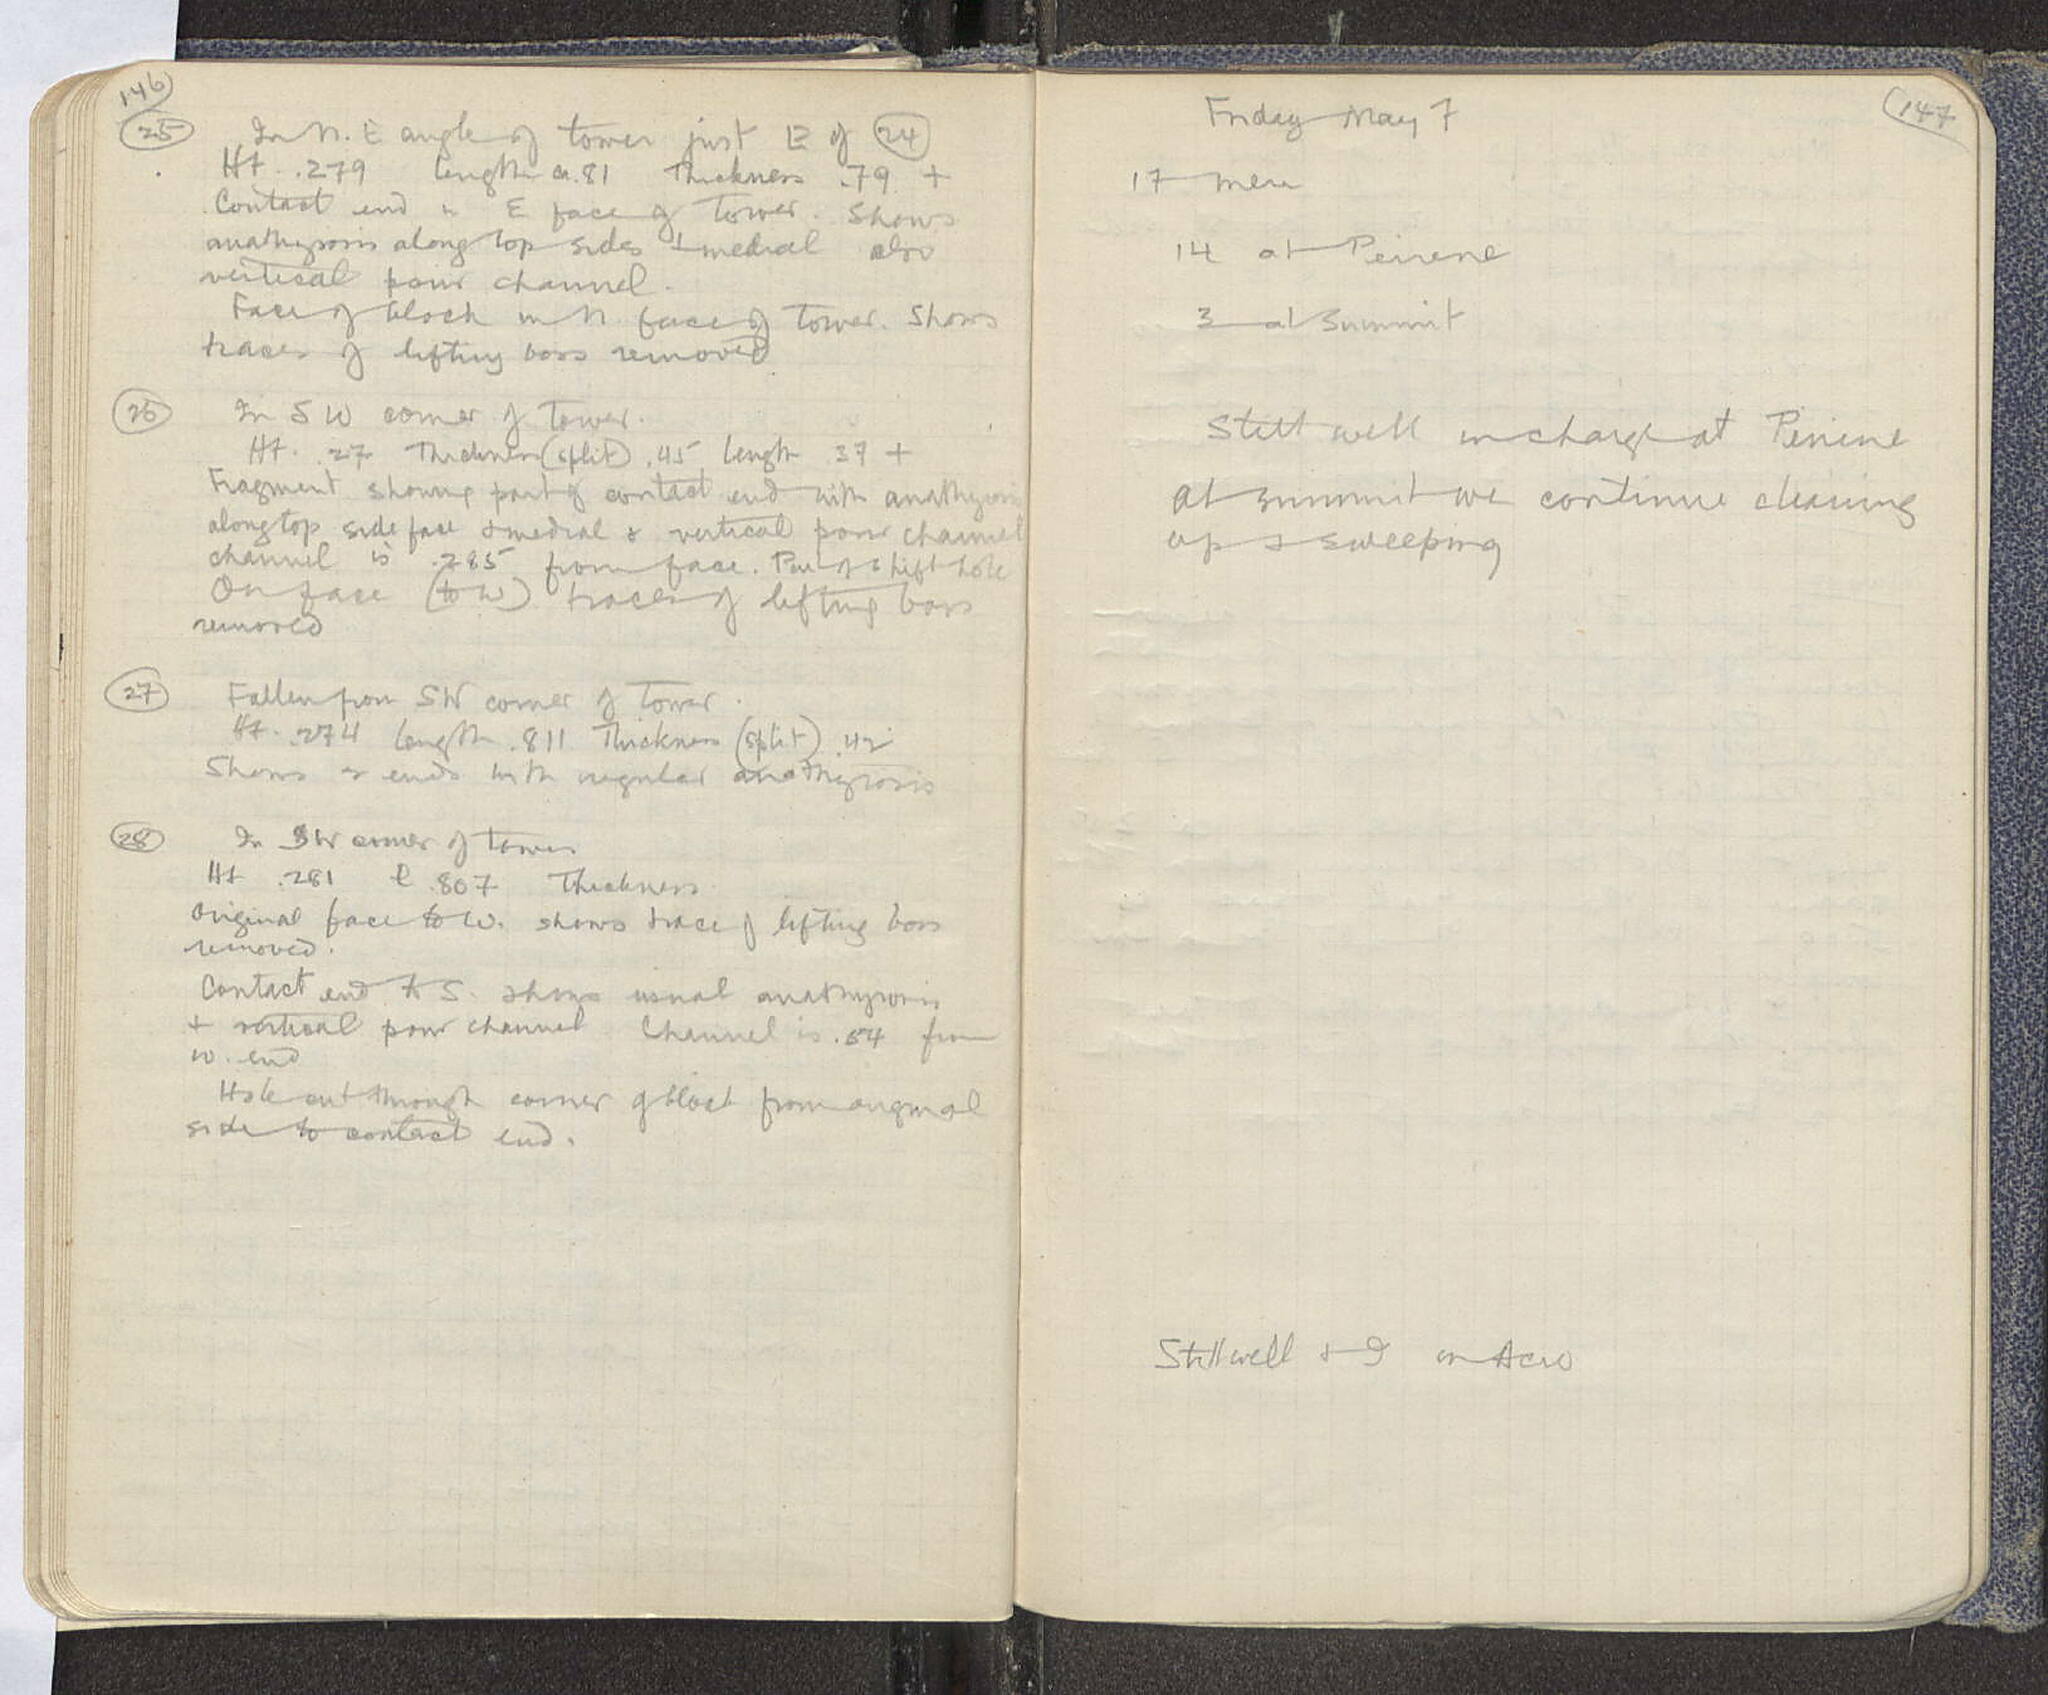 146
25 In N. E angle of tower just E of 24
Ht. .279 length ca .81 Thickness .79 +
Contact end in E face of Tower. Shows
anathyrosis along top sides + medial also
vertical pour channel.
Face of block in N. face of Tower. Shows
traces of lifting boss removed
26 In SW corner of Tower.
Ht. .27 Thickness (split) .45 length .37 +
Fragment showing part of contact end with anathyrosis
along top side face & medial & vertical pour channel
channel is .285 from face. Part of a lift hole
On face (to W) traces of lifting boss
removed
27 Fallen from SW corner of Tower.
Ht. .274 length .811 Thickness (split) .42
Shows 2 ends with regular anathyrosis
28 In SW corner of Tower
Ht .281 l .807 Thickness
Original face to W. shows trace of lifting boss
removed.
Contact end to S. shows usual anathyrosis
+ vertical pour channel Channel is .54 from
W. end
Hole cut through corner of block from original
side to contact end.
147
Friday May 7
17 men
14 at Peirene
3 at Summit
Stillwell in charge at Peirene
At summit we continue cleaning
up & sweeping
Stillwell & I on Acro